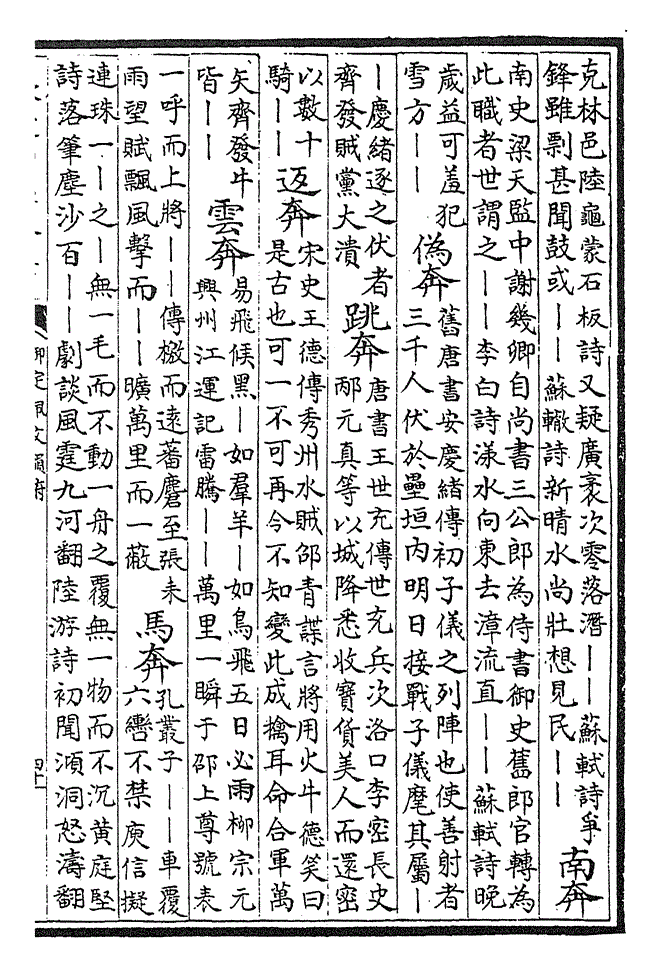 克林邑陸龜蒙石板詩又疑廣袤次零落潛||蘇軾詩爭
鋒雖剽甚聞鼓或||蘇轍詩新晴水尚壯想見民||
南奔
南史梁天監中謝幾卿自尚書三公郎為侍書御史舊郎官轉為
此職者世謂之||李白詩漾水向東去漳流直||蘇軾詩晚
歲益可羞犯
雪方||
偽奔
舊唐書安慶緒傳初子儀之列陣也使善射者
三千人伏於壘垣內明日接戰子儀麾其屬|
|慶緒逐之伏者
齊發賊黨大潰
跳奔
唐書王世充傳世充兵次洛口李密長史
邴元真等以城降悉收寶貨美人而還密
以數十
騎||
返奔
宋史王德傳秀州水賊邵青諜言將用火牛德笑曰
是古也可一不可再今不知變此成擒耳命合軍萬
矢齊發牛
皆||
雲奔
易飛候黑|如羣羊|如鳥飛五日必雨柳宗元
興州江運記雷騰||萬里一瞬于邵上尊號表
一呼而上將||傳檄而遠蕃麕至張耒
雨望賦飄風擊而||曠萬里而一蔽
馬奔
孔叢子||車覆
六轡不禁庾信擬
連珠一|之|無一毛而不動一舟之覆無一物而不沉黃庭堅
詩落筆塵沙百||劇談風霆九河翻陸游詩初聞澒洞怒濤翻
御定佩文韻府